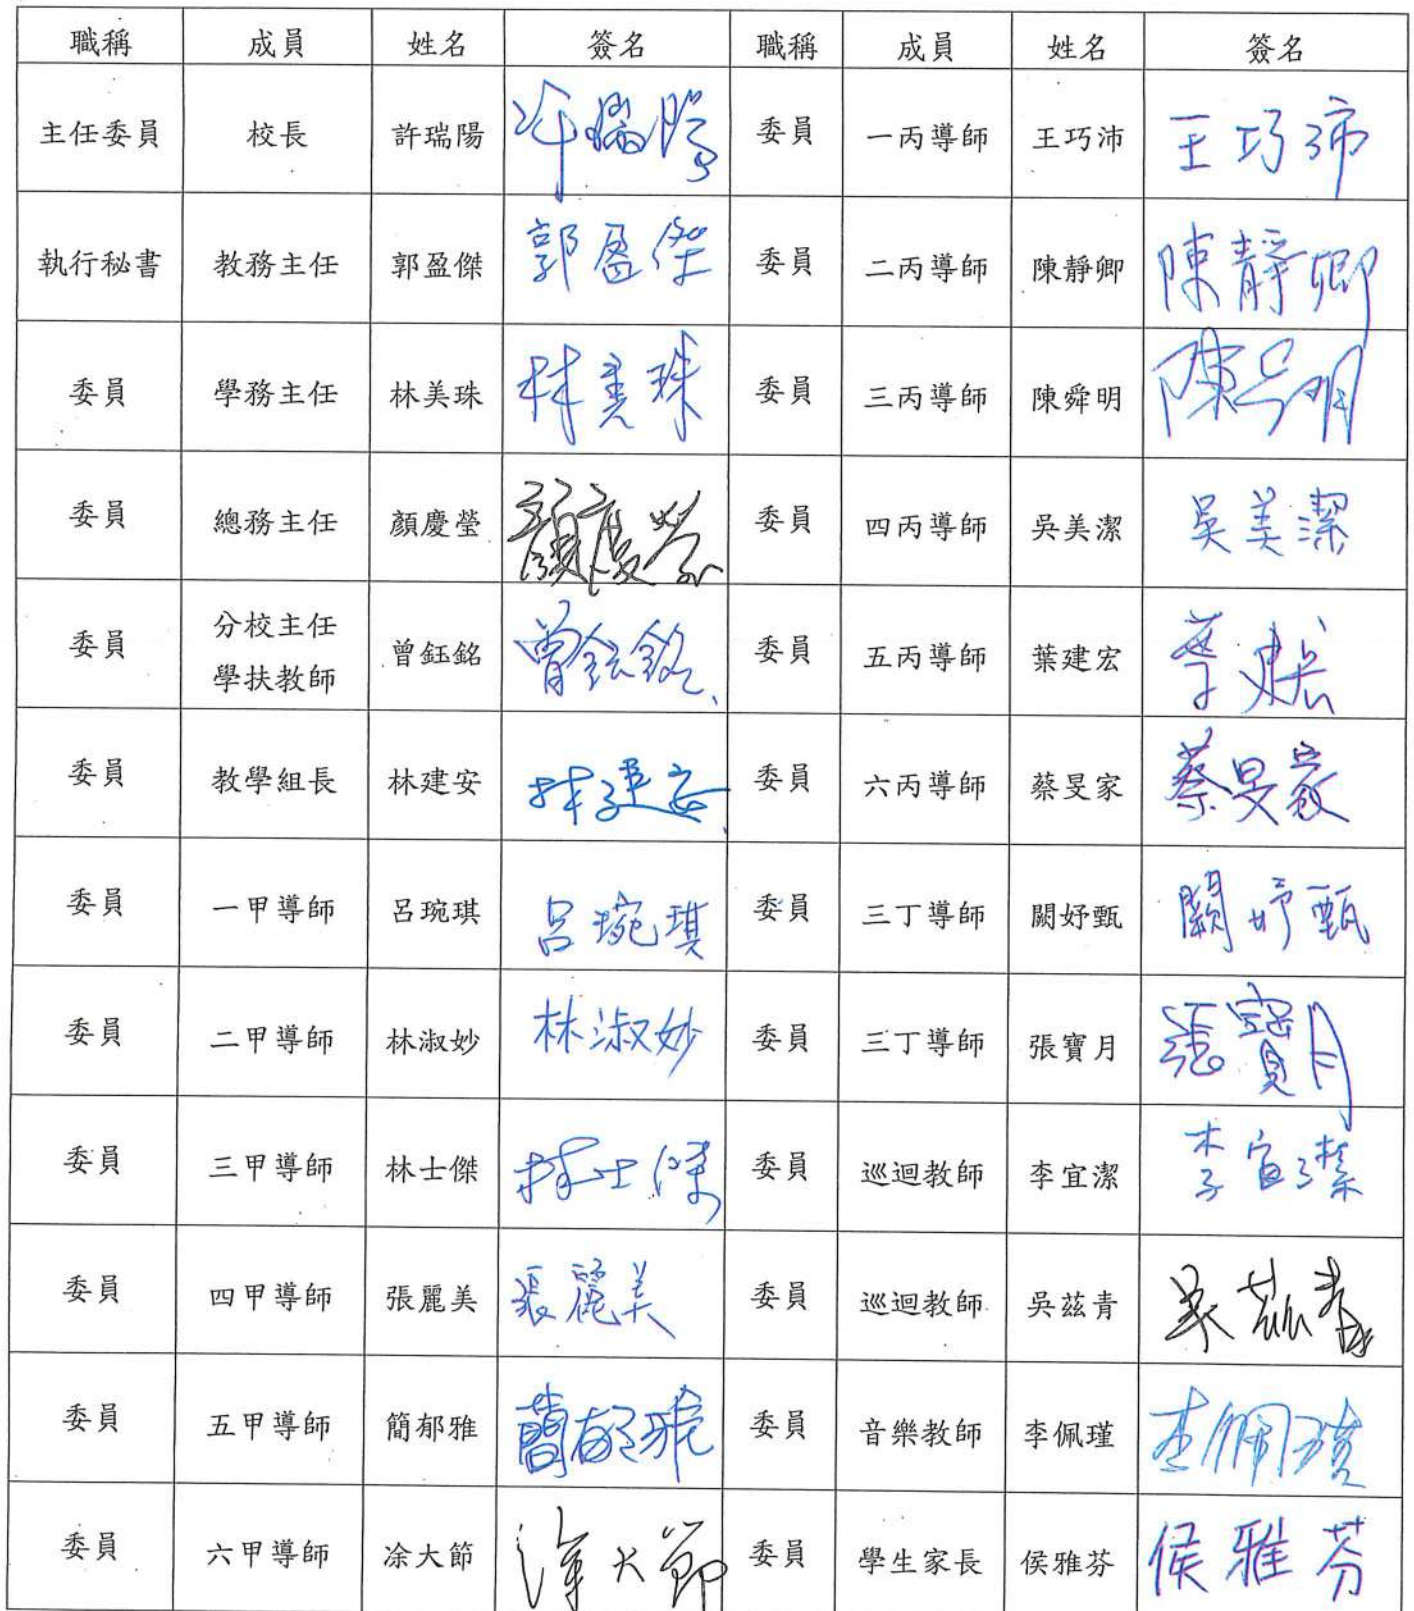 職稱 成員 姓名 簽名 職稱 成員 姓名 簽名
主任委員 校長 許瑞陽 許瑞陽 委員 一丙導師 王巧沛 王巧沛
執行秘書 教務主任 郭盈傑 郭盈傑 委員 二丙導師 陳靜卿 陳靜卿
委員 學務主任 林美珠 林美珠 委員 三丙導師 陳舜明 陳舜明
委員 總務主任 顏慶瑩 顏慶瑩 委員 四丙導師 吳美潔 吳美潔
委員 分校主任 曾鈺銘 曾鈺銘 委員 五丙導師 葉建宏 葉建宏
學扶教師
委員 教學組長 林建安 林建安 委員 六丙導師 蔡旻家 蔡旻家
委員 一甲導師 呂琬琪 呂琬琪 委員 三丁導師 闕妤甄 闕妤甄
委員 二甲導師 林淑妙 林淑妙 委員 三丁導師 張寶月 張寶月
委員 三甲導師 林士傑 林士傑 委員 巡迴教師 李宜潔 李宜潔
委員 四甲導師 張麗美 張麗美 委員 巡迴教師 吳茲青 吳茲青
委員 五甲導師 簡郁雅 簡郁雅 委員 音樂教師 李佩瑾 李佩瑾
委員 六甲導師 凃大節 凃大節 委員 學生家長 侯雅芬 侯雅芬